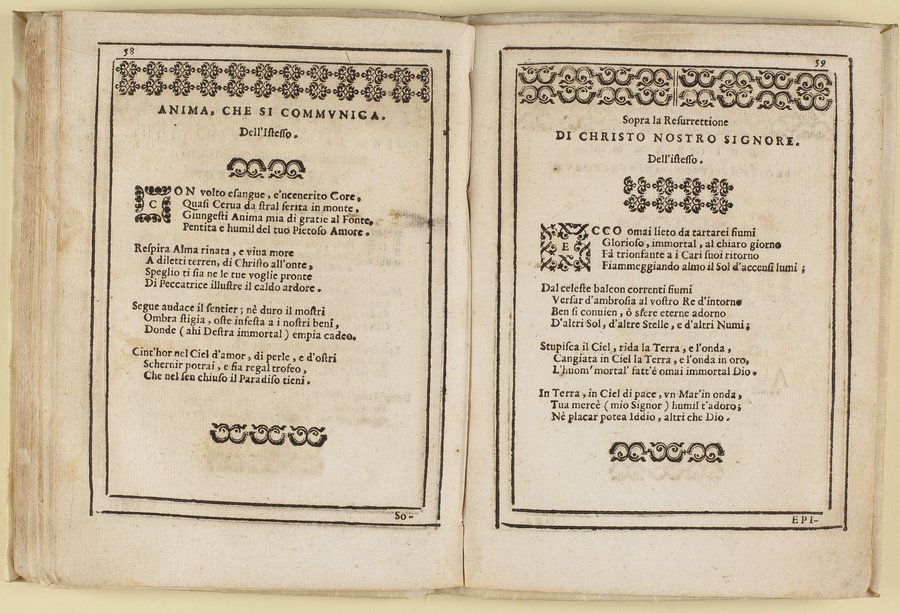 58
ANIMA, CHE SI COMMVNICA.
Dell'Istesso.
CON volto esangue, e'ncenerito Core,
Quasi Cerua da stral ferita in monte,
Giungesti Anima mia di gratie al Fonte,
Pentita e humil del tuo Pietoso Amore.
Respira Alma rinata, e viua more
A diletti terren, di Christo all'onte,
Speglio ti sia ne le tue voglie pronte
Di Peccatrice illustre il caldo ardore.
Segue audace il sentier; nè duro il mostri
Ombra stigia, oste infesta a i nostri beni,
Donde (ahi Destra immortal) empia cadeo.
Cint'hor nel Ciel d'amor, di perle, e d'ostri
Schernir potrai, e sia regal trofeo,
Che nel sen chiuso il Paradiso tieni.
So-
59
Sopra la Resurrettione
DI CHRISTO NOSTRO SIGNORE.
Dell'istesso.
ECCO omai lieto da tartarei fiumi
Glorioso, immortal, al chiaro giorno
Fà trionfante a i Cari suoi ritorno
Fiammeggiando almo il Sol d'accensi lumi;
Dal celeste balcon correnti fiumi
Versar d'ambrosia al vostro Re d'intorno
Ben si conuien, ò sfere eterne adorno
D'altri Sol, d'altre Stelle, e d'altri Numi;
Stupisca il Ciel, rida la Terra, e l'onda,
Cangiata in Ciel la Terra, e l'onda in oro,
L'huom' mortal' fatt'è omai immortal Dio.
In Terra, in Ciel di pace, vn Mar'in onda,
Tua mercè (mio Signor) humil t'adoro;
Nè placar potea Iddio, altri che Dio.
EPI-